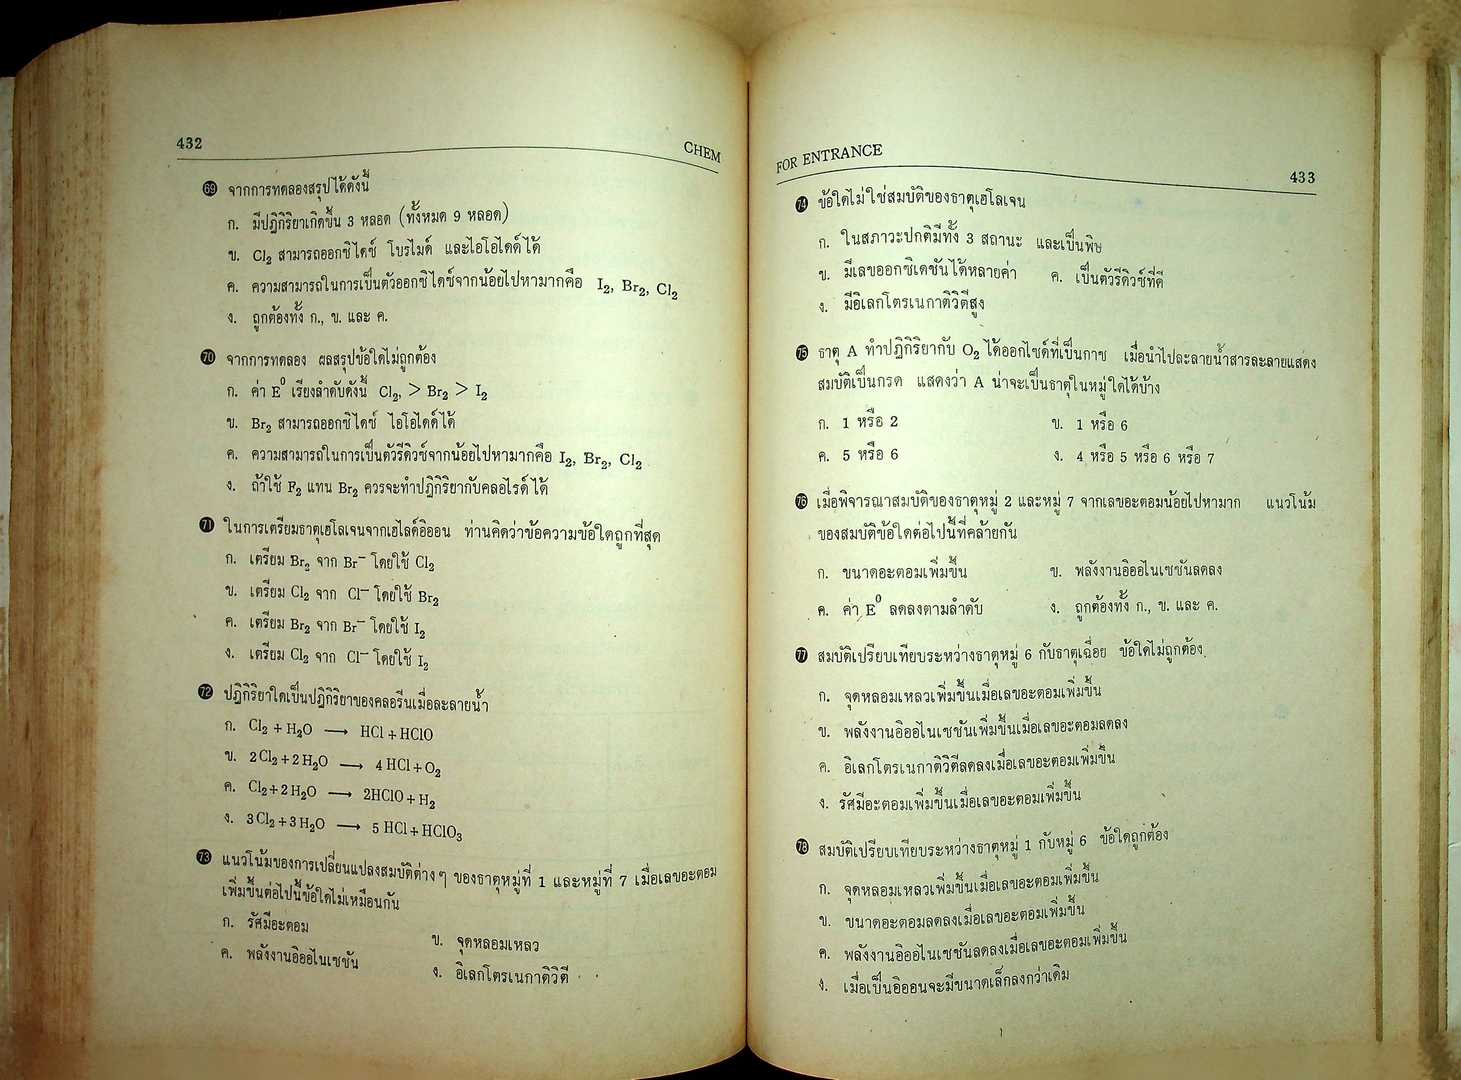 432 CHEM
69 จากการทดลองสรุปได้ดังนี้
ก. มีปฏิกิริยาเกิดขึ้น 3 หลอด (ทั้งหมด 9 หลอด)
ข. Cl₂ สามารถออกซิไดซ์ โบรไมด์ และไอโอไดด์ได้
ค. ความสามารถในการเป็นตัวออกซิไดซ์จากน้อยไปหามากคือ I₂, Br₂, Cl₂
ง. ถูกต้องทั้ง ก., ข. และ ค.
70 จากการทดลอง ผลสรุปข้อใดไม่ถูกต้อง
ก. ค่า E⁰ เรียงลำดับดังนี้ Cl₂, > Br₂ > I₂
ข. Br₂ สามารถออกซิไดซ์ ไอโอไดด์ได้
ค. ความสามารถในการเป็นตัวรีดิวซ์จากน้อยไปหามากคือ I₂, Br₂, Cl₂
ง. ถ้าใช้ F₂ แทน Br₂ ควรจะทำปฏิกิริยากับคลอไรด์ได้
71 ในการเตรียมธาตุเฮโลเจนจากเฮไลด์อิออน ท่านคิดว่าข้อความข้อใดถูกที่สุด
ก. เตรียม Br₂ จาก Br⁻ โดยใช้ Cl₂
ข. เตรียม Cl₂ จาก Cl⁻ โดยใช้ Br₂
ค. เตรียม Br₂ จาก Br⁻ โดยใช้ I₂
ง. เตรียม Cl₂ จาก Cl⁻ โดยใช้ I₂
72 ปฏิกิริยาใดเป็นปฏิกิริยาของคลอรีนเมื่อละลายน้ำ
ก. Cl₂ + H₂O ⟶ HCl + HClO
ข. 2Cl₂ + 2H₂O ⟶ 4HCl + O₂
ค. Cl₂ + 2H₂O ⟶ 2HClO + H₂
ง. 3Cl₂ + 3H₂O ⟶ 5HCl + HClO₃
73 แนวโน้มของการเปลี่ยนแปลงสมบัติต่างๆ ของธาตุหมู่ที่ 1 และหมู่ที่ 7 เมื่อเลขอะตอม
เพิ่มขึ้นต่อไปนี้ข้อใดไม่เหมือนกัน
ก. รัศมีอะตอม ข. จุดหลอมเหลว
ค. พลังงานอิออไนเซชัน ง. อิเลกโตรเนกาติวิตี
FOR ENTRANCE 433
74 ข้อใดไม่ใช่สมบัติของธาตุเฮโลเจน
ก. ในสภาวะปกติมีทั้ง 3 สถานะ และเป็นพิษ
ข. มีเลขออกซิเดชันได้หลายค่า ค. เป็นตัวรีดิวซ์ที่ดี
ง. มีอิเลกโตรเนกาติวิตีสูง
75 ธาตุ A ทำปฏิกิริยากับ O₂ ได้ออกไซด์ที่เป็นกาซ เมื่อนำไปละลายน้ำสารละลายแสดง
สมบัติเป็นกรด แสดงว่า A น่าจะเป็นธาตุในหมู่ใดได้บ้าง
ก. 1 หรือ 2 ข. 1 หรือ 6
ค. 5 หรือ 6 ง. 4 หรือ 5 หรือ 6 หรือ 7
76 เมื่อพิจารณาสมบัติของธาตุหมู่ 2 และหมู่ 7 จากเลขอะตอมน้อยไปหามาก แนวโน้ม
ของสมบัติข้อใดต่อไปนี้ที่คล้ายกัน
ก. ขนาดอะตอมเพิ่มขึ้น ข. พลังงานอิออไนเซชันลดลง
ค. ค่า E⁰ ลดลงตามลำดับ ง. ถูกต้องทั้ง ก., ข. และ ค.
77 สมบัติเปรียบเทียบระหว่างธาตุหมู่ 6 กับธาตุเฉื่อย ข้อใดไม่ถูกต้อง
ก. จุดหลอมเหลวเพิ่มขึ้นเมื่อเลขอะตอมเพิ่มขึ้น
ข. พลังงานอิออไนเซชันเพิ่มขึ้นเมื่อเลขอะตอมลดลง
ค. อิเลกโตรเนกาติวิตีลดลงเมื่อเลขอะตอมเพิ่มขึ้น
ง. รัศมีอะตอมเพิ่มขึ้นเมื่อเลขอะตอมเพิ่มขึ้น
78 สมบัติเปรียบเทียบระหว่างธาตุหมู่ 1 กับหมู่ 6 ข้อใดถูกต้อง
ก. จุดหลอมเหลวเพิ่มขึ้นเมื่อเลขอะตอมเพิ่มขึ้น
ข. ขนาดอะตอมลดลงเมื่อเลขอะตอมเพิ่มขึ้น
ค. พลังงานอิออไนเซชันลดลงเมื่อเลขอะตอมเพิ่มขึ้น
ง. เมื่อเป็นอิออนจะมีขนาดเล็กลงกว่าเดิม